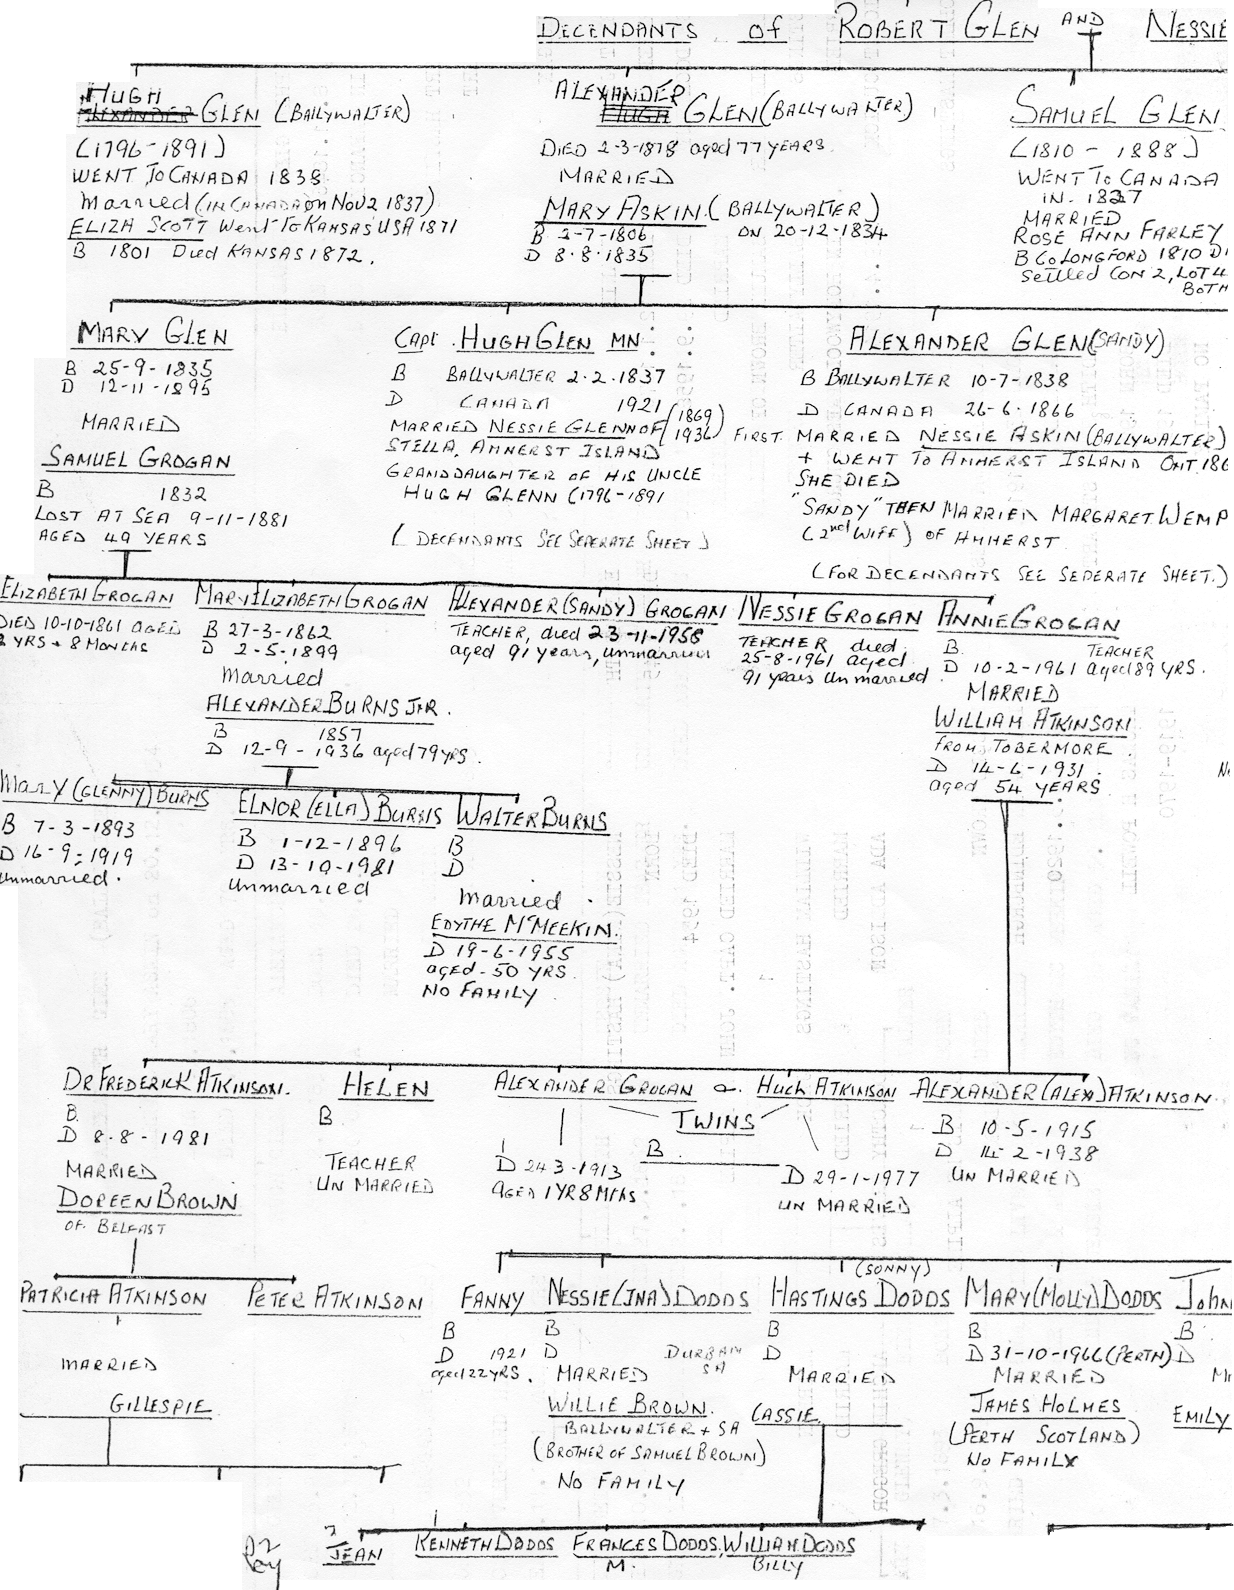 DECENDANTS of ROBERT GLEN AND NESSIE
HUGH
ALEXANDER GLEN (BALLYWALTER)
(1796-1891)
WENT TO CANADA 1838
Married (IN CANADA ON NOV 2 1837)
ELIZA SCOTT Went To KANSAS USA 1871
B 1801 Died KANSAS 1872.
ALEXANDER
HUGH GLEN (BALLYWALTER)
DIED 2-3-1878 aged 77 YEARS
MARRIED
MARY ASKIN (BALLYWALTER)
B 2-7-1806 ON 20-12-1834
D 8.8.1835
SAMUEL GLEN
(1810 - 1888)
WENT TO CANADA
IN. 1827
MARRIED
ROSE ANN FARLEY
B CO LONGFORD 1810 D
Settled CON 2, LOT 4
BOTH
MARY GLEN
B 25-9-1835
D 12-11-1895
MARRIED
SAMUEL GROGAN
B 1832
LOST AT SEA 9-11-1881
AGED 49 YEARS
Capt. HUGH GLEN MN
B BALLYWALTER 2.2.1837
D CANADA 1921
MARRIED NESSIE GLENN OF (1869 1936)
STELLA, AMHERST ISLAND
GRANDDAUGHTER OF HIS UNCLE
HUGH GLENN (1796-1891
(DECENDANTS SEE SEPERATE SHEET)
ALEXANDER GLEN (SANDY)
B BALLYWALTER 10-7-1838
D CANADA 26-6-1866
FIRST MARRIED NESSIE ASKIN (BALLYWALTER)
+ WENT TO AMHERST ISLAND ONT 186
SHE DIED
"SANDY" THEN MARRIED MARGARET WEMP
(2nd WIFE) OF AMHERST
(FOR DECENDANTS SEE SEPERATE SHEET.)
ELIZABETH GROGAN
DIED 10-10-1861 AGED
2 YRS + 8 MONTHS
MARY ELIZABETH GROGAN
B 27-3-1862
D 2-5-1899
Married
ALEXANDER BURNS JNR.
B 1857
D 12-9-1936 aged 79 yrs.
ALEXANDER (SANDY) GROGAN
TEACHER, died 23-11-1958
aged 91 years, unmarried
NESSIE GROGAN
TEACHER died
25-8-1961 aged
91 years Unmarried
ANNIE GROGAN
B. TEACHER
D 10-2-1961 aged 89 YRS.
MARRIED
WILLIAM ATKINSON
FROM TOBERMORE.
D 14-6-1931.
aged 54 YEARS
Mary (GLENNY) BURNS
B 7-3-1893
D 16-9-1919
Unmarried.
ELNOR (ELLA) BURNS
B 1-12-1896
D 13-10-1981
Unmarried
WALTER BURNS
B
D
Married
EDYTHE McMEEKIN.
D 19-6-1955
aged - 50 YRS.
NO FAMILY
DR FREDERICK ATKINSON.
B.
D 8.8-1981
MARRIED
DOREEN BROWN
OF BELFAST
HELEN
B
TEACHER
UN MARRIED
ALEXANDER GROGAN & HUGH ATKINSON
TWINS
B
D 24 3-1913
AGED 1 YR 8 MTHS
D 29-1-1977
UN MARRIED
ALEXANDER (ALEX) ATKINSON
B 10-5-1915
D 14-2-1938
UN MARRIED
PATRICIA ATKINSON
MARRIED
GILLESPIE
PETER ATKINSON
FANNY
B
D 1921
aged 22 YRS.
NESSIE (INA) DODDS
B
D DURBAN SA
MARRIED
WILLIE BROWN.
BALLYWALTER + SA
(BROTHER OF SAMUEL BROWN)
NO FAMILY
(SONNY)
HASTINGS DODDS
B
D
MARRIED
CASSIE
MARY (MOLLY) DODDS
B
D 31-10-1966 (PERTH)
MARRIED
JAMES HOLMES
(PERTH SCOTLAND)
NO FAMILY
John
B
D
EMILY
JEAN
KENNETH DODDS
FRANCES DODDS,
M.
WILLIAM DODDS
BILLY